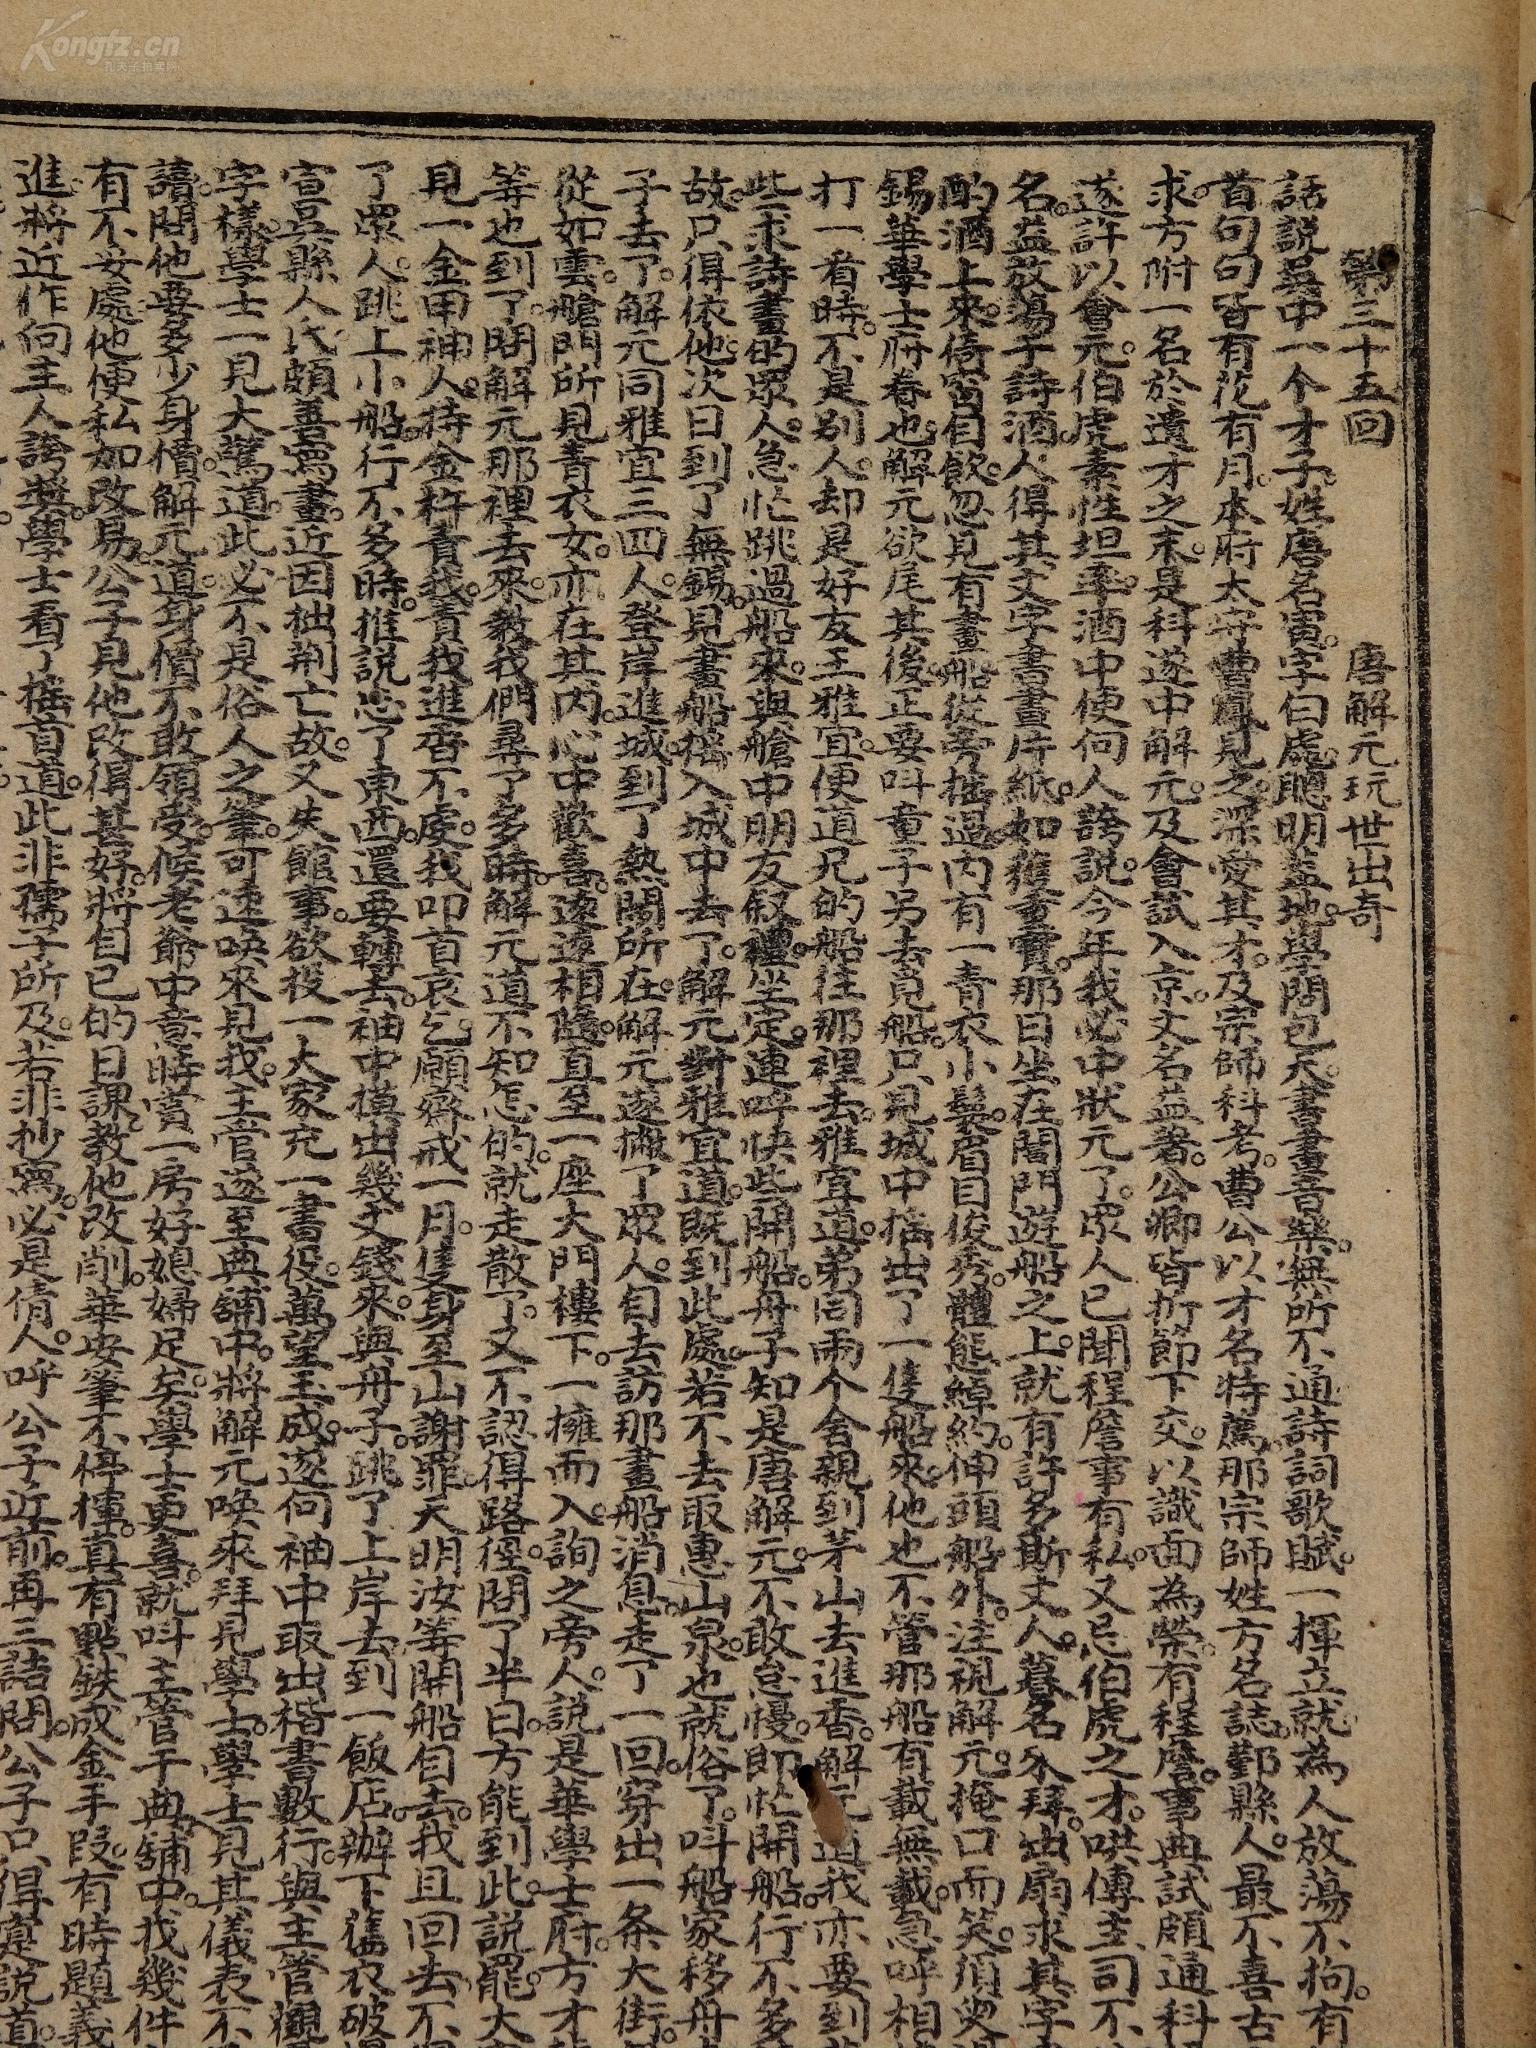 第三十五回　唐解元玩世出奇
話說吳中一个才子姓唐名寅字曰虎聰明蓋地學問包天書畫音樂無所不通詩詞歌賦一揮立就為人放蕩不拘有
首句句皆有花有月本府太守曹鳳見之深愛其才及宗師科考曹公以才名特薦那宗師姓方名誌鄞縣人最不喜古
求方附一名於遺才之末是科遂中解元及會試入京文名益著公卿皆折節下交以識面為榮有程詹事典試頗通科
遂許以會元伯虎素性坦率酒中便向人誇說今年我必中狀元了眾人已聞程詹事有私又忌伯虎之才哄傳主司不
名益放蕩于詩酒人得其文字書畫片紙如獲重寶那日坐在閶門遊船之上就有許多斯文人慕名來拜出扇求其字
酌酒上來倚窗自飲忽見有畫船從旁搖過內有一青衣小鬟眉目俊秀體態綽約伸頭船外注視解元掩口而笑須臾
錫華學士府眷也解元欲尾其後正要叫童子另去覓船只見城中搖出了一隻船來他也不管那船有載無載急呼相
打一看時不是別人却是好友王雅宜便道兄的船往那裡去雅宜道弟同兩个舍親到茅山去進香解元道我亦要到
些求詩畫的眾人急忙跳過船來與艙中朋友敘禮坐定連呼快些開船舟子知是唐解元不敢怠慢即忙開船行不多
故只得依他次日到了無錫見畫船搖入城中去了解元對雅宜道既到此處若不去取惠山泉也就俗了叫船家移舟
子去了解元同雅宜三四人登岸進城到了熱鬧所在解元遂撇了眾人自去訪那畫船消息走了一回穿出一条大街
從如雲艙門所見青衣女亦在其內心中歡喜遠遠相隨直至一座大門樓下一擁而入詢之旁人說是華學士府方才
等也到了問解元那裡去來教我們尋了多時解元道不知怎的就走散了又不認得路徑問了半日方能到此說罷大
見一金甲神人持金杵責我責我進香不虔我叩首哀乞願齋戒一月隻身至山謝罪天明汝等開船自去我且回去不
了眾人跳上小船行不多時推說忘了東西還要轉去袖中摸出幾文錢來與舟子跳了上岸去到一飯店辦下舊衣破
宣吳縣人氏頗善寫畫近因拙荆亡故又失館事欲投一大家充一書役萬望玉成遂向袖中取出楷書數行與主管觀
字樣學士一見大驚道此必不是俗人之筆可速喚來見我主管遂至典舖中將解元喚來拜見學士學士見其儀表不
讀問他要多少身價解元道身價不敢領受候老爺中意時賞一房好媳婦足矣學士更喜就叫主管于典舖中找幾件
有不妥處他便私加改易公子見他改得甚好將自已的日課教他改削華安筆不停揮真有點鉄成金手段有時題義
進將近作向主人誇獎學士看了搖首道此非孺子所及若非抄寫必是倩人呼公子近前再三詰問公子只得寔說道